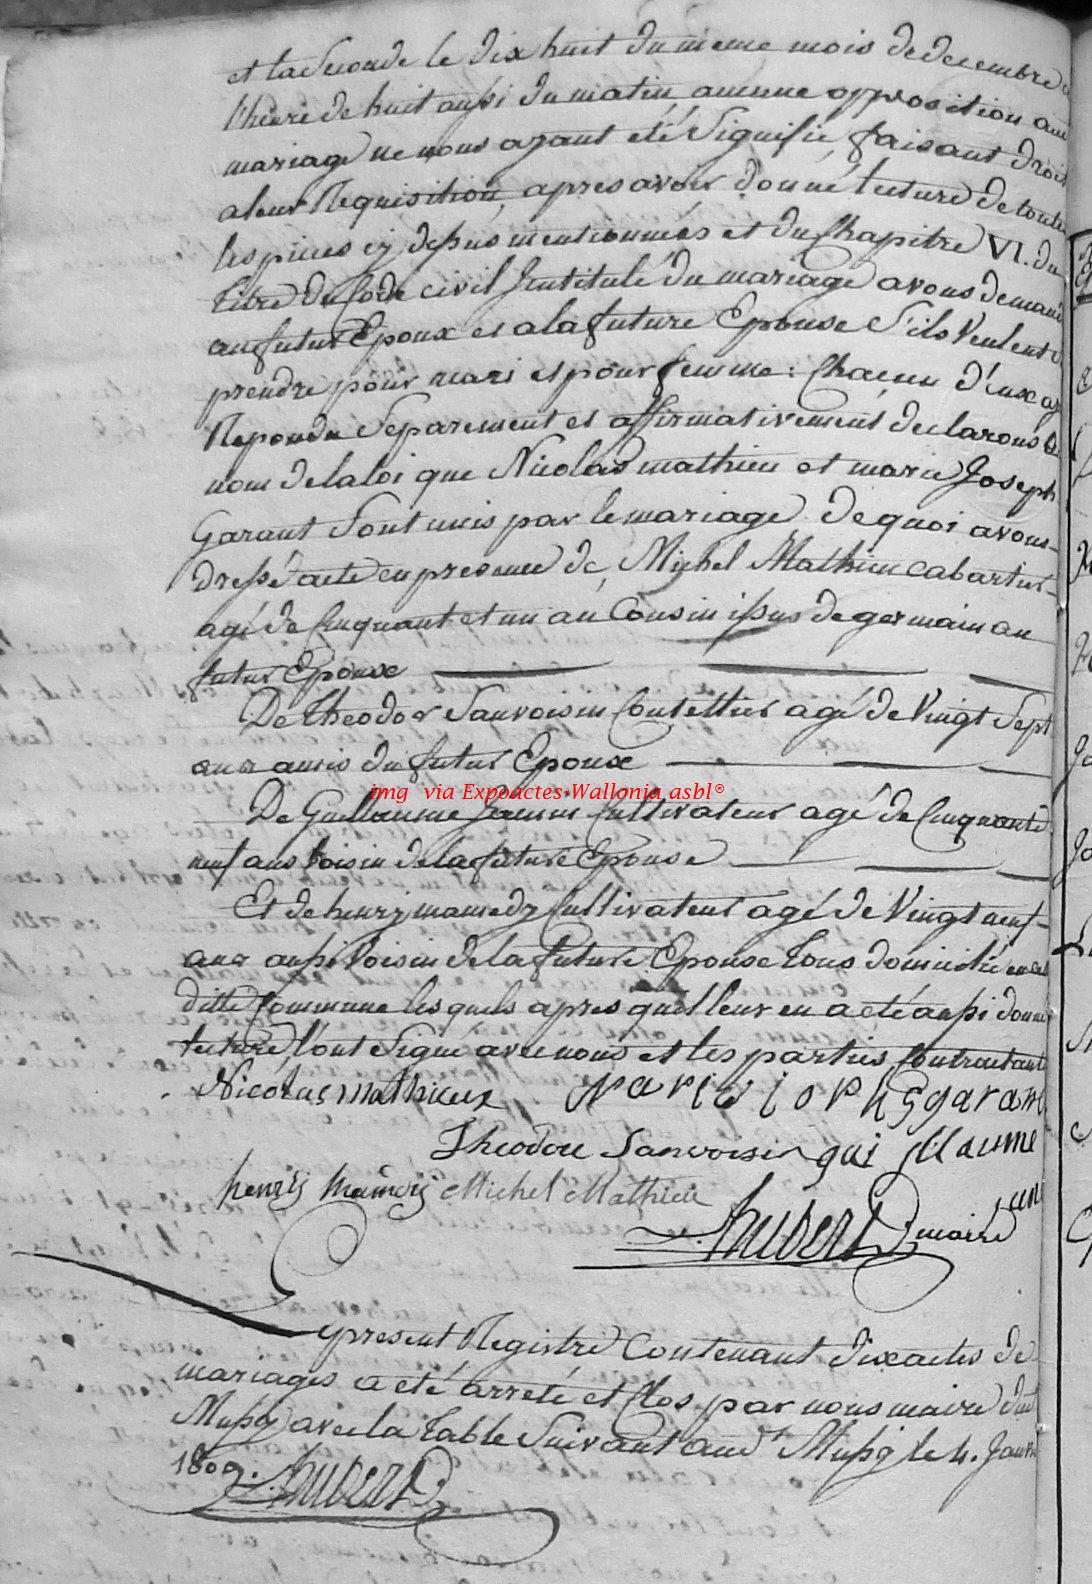 et la Seconde le dix huit du meme mois de decembre a
l'heure de huit aussi du matin aucune opposition au
mariage ne nous ayant eté Signifié, faisant droit
a leur Requisition, apres avoir donné lecture de toutes
les pieces cy dessus mentionnées et du Chapitre VI. du
titre du Code civil Intitulé du mariage avons demandé
au futur Epoux et a la future Epouse S'ils Veulent se
prendre pour mari et pour femme : Chacun d'eux ay
Repondu Separement et affirmativement declarons au
nom de la loi que Nicolas mathieu et marie Joseph
Garant Sont unis par le mariage de quoi avons
dressé acte en presence de Michel Mathieu cabartier
agé de Cinquant et un an Cousin issus de germain au
futur Epoux
De Theodor Sauvoisin agé de Vingt Sept
ans amis du futur Epoux
img via Expoactes-Wallonia asbl©
De Guillaume Cultivateur agé de Cinquante
neuf ans Voisin de la future Epouse
Et de henry mamedy Cultivateur agé de Vingt neuf
ans aussi Voisin de la future Epouse tous domicilié en
ditte Commune les quels apres qu'il leur en a eté aussi donné
lecture l'ont Signé avec nous et les parties Contractante
Nicolas mathieux Marie joseph garant
Theodore Sanvoisin guillaume
henry Michel Mathieu
Hubert maire
present Registre Contenant dix actes de
mariages a eté arreté et Clos par nous maire dud
Mussy avec la table Suivant aud.t Mussy le 4. Janvier
1809. Hubert